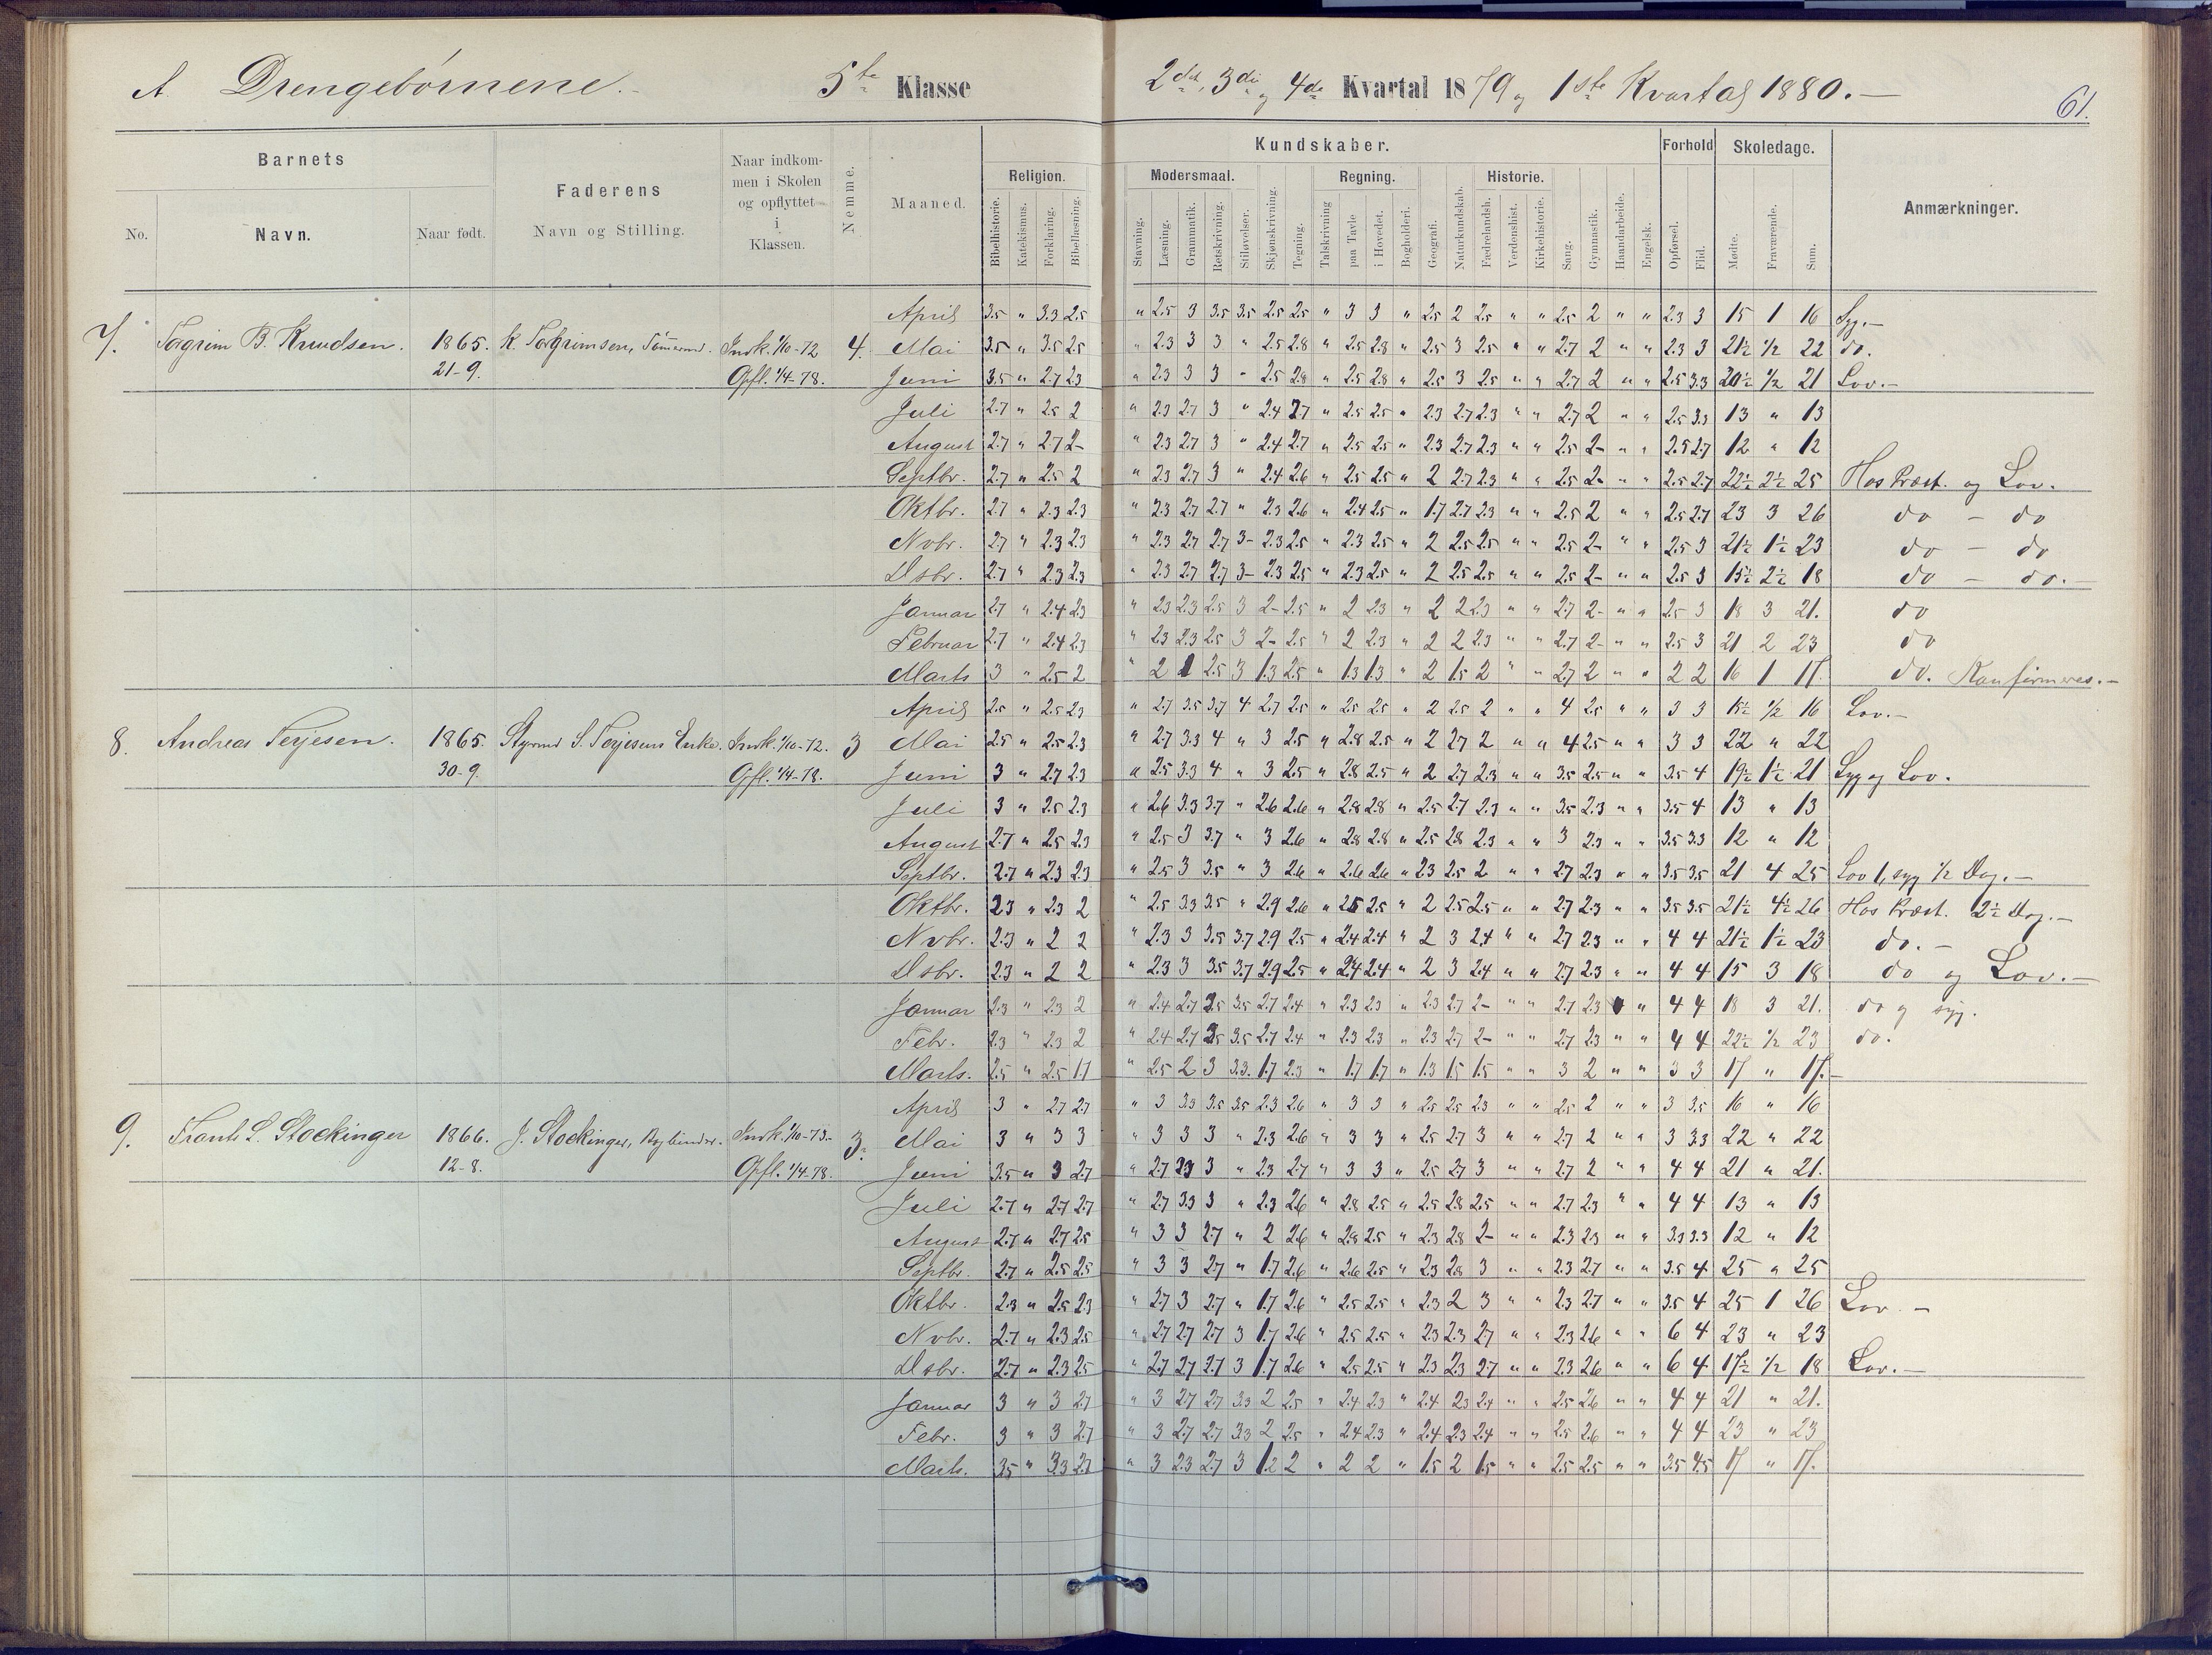 A Drengebörnene.- 5te Klasse 2det, 3die og 4de Kvartal 1879 og 1ste Kvartal 1880.-
61.
Barnets
No. Navn. Naar født.
Faderens
Navn og Stilling.
Naar indkom-
men i Skolen
og opflyttet
i
Klassen.
Nemme.
Maaned.
Kundskaber. Forhold Skoledage. Anmærkninger.
Religion. Modersmaal. Regning. Historie.
Bibelhistorie. Katekismus. Forklaring. Bibellæsning. Stavning. Læsning. Grammatik. Retskrivning. Stiløvelser. Skjønskrivning. Tegning. Talskrivning paa Tavle i Hovedet. Bogholderi. Geografi. Naturkundskab. Fædrelandsh. Verdenshist. Kirkehistorie. Sang. Gymnastik. Haandarbeide. Engelsk. Opførsel. Flid. Mødte. Fraværende. Sum.
April 3.5 " 3.3 2.5 " 2.5 3 3.5 3.5 2.5 2.5 " 3 3 " 2.5 2 2.5 " " 2.5 2 " " 2.3 3 15 1 16 Syg.-
7. Torgrim B. Knudsen. 1865. K. Torgrimsen, Tömermd. Indk. 1/10-72 4. Mai 3.5 " 3.5 2.5 " 2.3 3 3 " 2.5 2.8 " 2.5 2.8 " 2.5 3 2.5 " " 2.7 2 " " 2.3 3 21½ ½ 22 do.
21-9. Opfl. 1/4-78. Juni 3.5 " 2.7 2.3 " 2.3 3 3 " 2.5 2.8 " 2.5 2.8 " 2.5 3 2.5 " " 2.7 2 " " 2.5 3.3 20½ ½ 21 Lov.-
Juli 2.7 " 2.5 2 " 2.3 2.7 3 " 2.4 2.7 " 2.5 2.5 " 2.3 2.7 2.3 " " 2.7 2 " " 2.5 3.3 13 " 13
August 2.7 " 2.7 2- " 2.3 2.7 3 " 2.4 2.7 " 2.5 2.5 " 2.3 2.7 2.3 " " 2.5 2- " " 2.5 2.7 12 " 12
Septbr. 2.7 " 2.5 2 " 2.3 2.7 3 " 2.4 2.6 " 2.5 2.5 " 2 2.7 2.3 " " 2.5 2- " " 2.5 2.7 22½ 2½ 25 Hos Præst. og Lov.
Oktbr. 2.7 " 2.3 2.3 " 2.3 2.7 2.7 " 2.3 2.6 " 2.4 2.5 " 1.7 2.7 2.3 " " 2.5 2 " " 2.5 2.7 23 3 26 do - do
Nvbr. 2.7 " 2.3 2.3 " 2.3 2.7 2.7 3- 2.3 2.5 " 2.3 2.5 " 2 2.5 2.5 " " 2.5 2- " " 2.5 3 21½ 1½ 23 do - do
Dsbr. 2.7 " 2.3 2.3 " 2.3 2.7 2.7 3- 2.3 2.5 " 2.3 2.5 " 2 2.5 2.5 " " 2.5 2- " " 2.5 3 15½ 2½ 18 do - do.-
Januar 2.7 " 2.4 2.3 " 2.3 2.3 2.5 3 2- 2.5 " 2 2.3 " 2 2 2.3 " " 2.7 2- " " 2.5 3 18 3 21. do
Februar 2.7 " 2.4 2.3 " 2.3 2.3 2.5 3 2- 2.5 " 2 2.3 " 2 2 2.3 " " 2.7 2- " " 2.5 3 21 2 23 do
Marts 3 " 2.5 2 " 2 2.5 3 1.3 2.5 " 1.3 1.3 " 2 1.5 2 " " 2.7 2 " " 2 2 16 1 17. do. Konfirmeres.-
April 2.5 " 2.5 2.3 " 2.7 3.5 3.7 4 2.7 2.5 " 2.5 2.5 " 2 2.5 2 " " 4 2.5 " " 3 3 15½ ½ 16 Lov.-
8. Andreas Terjesen. 1865. Styrmd S. Terjesens Enke. Indk. 1/10-72. 3 Mai 2.5 " 2.5 2.3 " 2.7 3.3 4 " 3 2.5 " 2.8 2.5 " 2 2.7 2 " " 4 2.5 " " 3 3 22 " 22
30-9. Opfl. 1/4-78. Juni 3 " 2.7 2.3 " 2.5 3.3 4 " 3 2.5 " 2.8 2.5 " 2 2.7 2.3 " " 3.5 2.5 " " 3.5 4 19½ 1½ 21 Syg og Lov.
Juli 3 " 2.5 2.3 " 2.6 3.3 3.7 " 2.6 2.6 " 2.8 2.8 " 2.5 2.7 2.3 " " 3.5 2.3 " " 3.5 4 13 " 13
August 2.7 " 2.5 2.3 " 2.5 3 3.7 " 3 2.6 " 2.8 2.8 " 2.5 2.8 2.3 " " 3 2.3 " " 3.5 3.3 12 " 12
Septbr. 2.7 " 2.3 2.3 " 2.5 3 3.5 " 3 2.6 " 2.6 2.6 " 2.3 2.5 2 " " 2.7 2.3 " " 3.5 3.5 21 4 25 Lov 1, syg ½ Dag.-
Oktbr. 2.3 " 2.3 2 " 2.5 3.3 3.5 " 2.9 2.6 " 2.5 2.5 " 2 2.5 2.5 " " 2.7 2.3 " " 3.5 3.5 21½ 4½ 26 Hos Præst. 2½ Dag.-
Nvbr. 2.3 " 2 2 " 2.3 3 3.5 3.7 2.9 2.5 " 2.4 2.4 " 2 3 2.4 " " 2.7 2.3 " " 4 4 21½ 1½ 23 do.-
Dsbr. 2.3 " 2 2 " 2.3 3 3.5 3.7 2.9 2.5 " 2.4 2.4 " 2 3 2.4 " " 2.7 2.3 " " 4 4 15 3 18 do og Lov.-
Januar 2.3 " 2.3 2 " 2.4 2.7 3.5 3.5 2.7 2.4 " 2.3 2.3 " 2.3 2.7 2- " " 2.7 2.3 " 4 4 18 3 21. do og syg.
Febr. 2.3 " 2.3 2 " 2.4 2.7 3.5 3.5 2.7 2.4 " 2.3 2.3 " 2.3 2.7 2- " " 2.7 2.3 " " 4 4 22½ ½ 23 do.
Marts. 2.5 " 2.5 1.7 " 2.5 2 3 3.3. 1.7 2.3 " 1.7 1.7 " 1.3 1.5 1.5 " " 3 2 " " 3 3 17 " 17.-
April 3 " 2.7 2.7 " 3 3.3 3.5 3.5 2.3 2.6 " 3 3 " 2.5 2.5 2.3 " " 2.5 2 " " 3 3.5 16 " 16
9. Frants L. Stockinger 1866. J. Stockinger, Bogbinder. Indk. 1/10-73- 3. Mai 3 " 3 3 " 3 3 3 " 2.3 2.6 " 3 3 " 2.5 2.7 3 " " 2.7 2 " " 3 3.3 22 " 22
12-8. Opfl. 1/4-78. Juni 3.5 " 3 2.7 " 2.7 3.3 3 " 2.3 2.7 " 3 3 " 2.5 2.7 3 " " 2.7 2 " " 4 4 21 " 21.
Juli 2.7 " 2.7 2.7 " 2.7 3.3 3 " 2.3 2.6 " 2.8 2.5 " 2.5 2.8 2.5 " " 2.7 2.3 " " 4 4 13 " 13
August 2.7 " 2.7 2.5 " 3 3 2.7 " 2 2.6 " 2.8 2.5 " 2.3 2.8 2- " " 2.3 2.3 " " 3.3 3.3 12 " 12
Septbr. 2.7 " 2.5 2.5 " 3 3 2.7 " 1.7 2.6 " 2.6 2.5 " 2.3 2.8 3 " " 2.3 2.7 " " 3.5 4 25 " 25
Oktbr. 2.3 " 2.5 2.3 " 2.7 3 2.7 " 1.7 2.6 " 2.5 2.5 " 2.3 2 3 " " 2.3 2.7 " " 3.5 4 25 1 26 Lov.-
Nvbr. 2.7 " 2.3 2.5 " 2.7 2.7 2.7 3 1.7 2.6 " 2.5 2.5 " 2.3 2.3 2.7 " " 2.3 2.6 " " 6 4 23 " 23
Dsbr. 2.7 " 2.3 2.5 " 2.7 2.7 2.7 3 1.7 2.6 " 2.5 2.5 " 2.3 2.3 2.7 " " 2.3 2.6 " " 6 4 17½ ½ 18 Lov.-
Januar 3 " 3 2.7 " 3 2.7 2.7 3.3 2 2.5 " 2.4 2.3 " 2.4 2.3 2.4 " " 2.5 2.6 " " 4 4 21 " 21.
Febr. 3 " 3 2.7 " 3 2.7 2.7 3.3 2 2.5 " 2.4 2.3 " 2.4 2.3 2.4 " " 2.5 2.6 " " 4 4 23 " 23
Marts. 3.5 " 3.3 2.7 " 3 2.3 2.7 3 1.2 2 " 2 2 " 1.5 2 1.5 " " 2.5 2.5 " " 3.5 4.5 17 " 17.